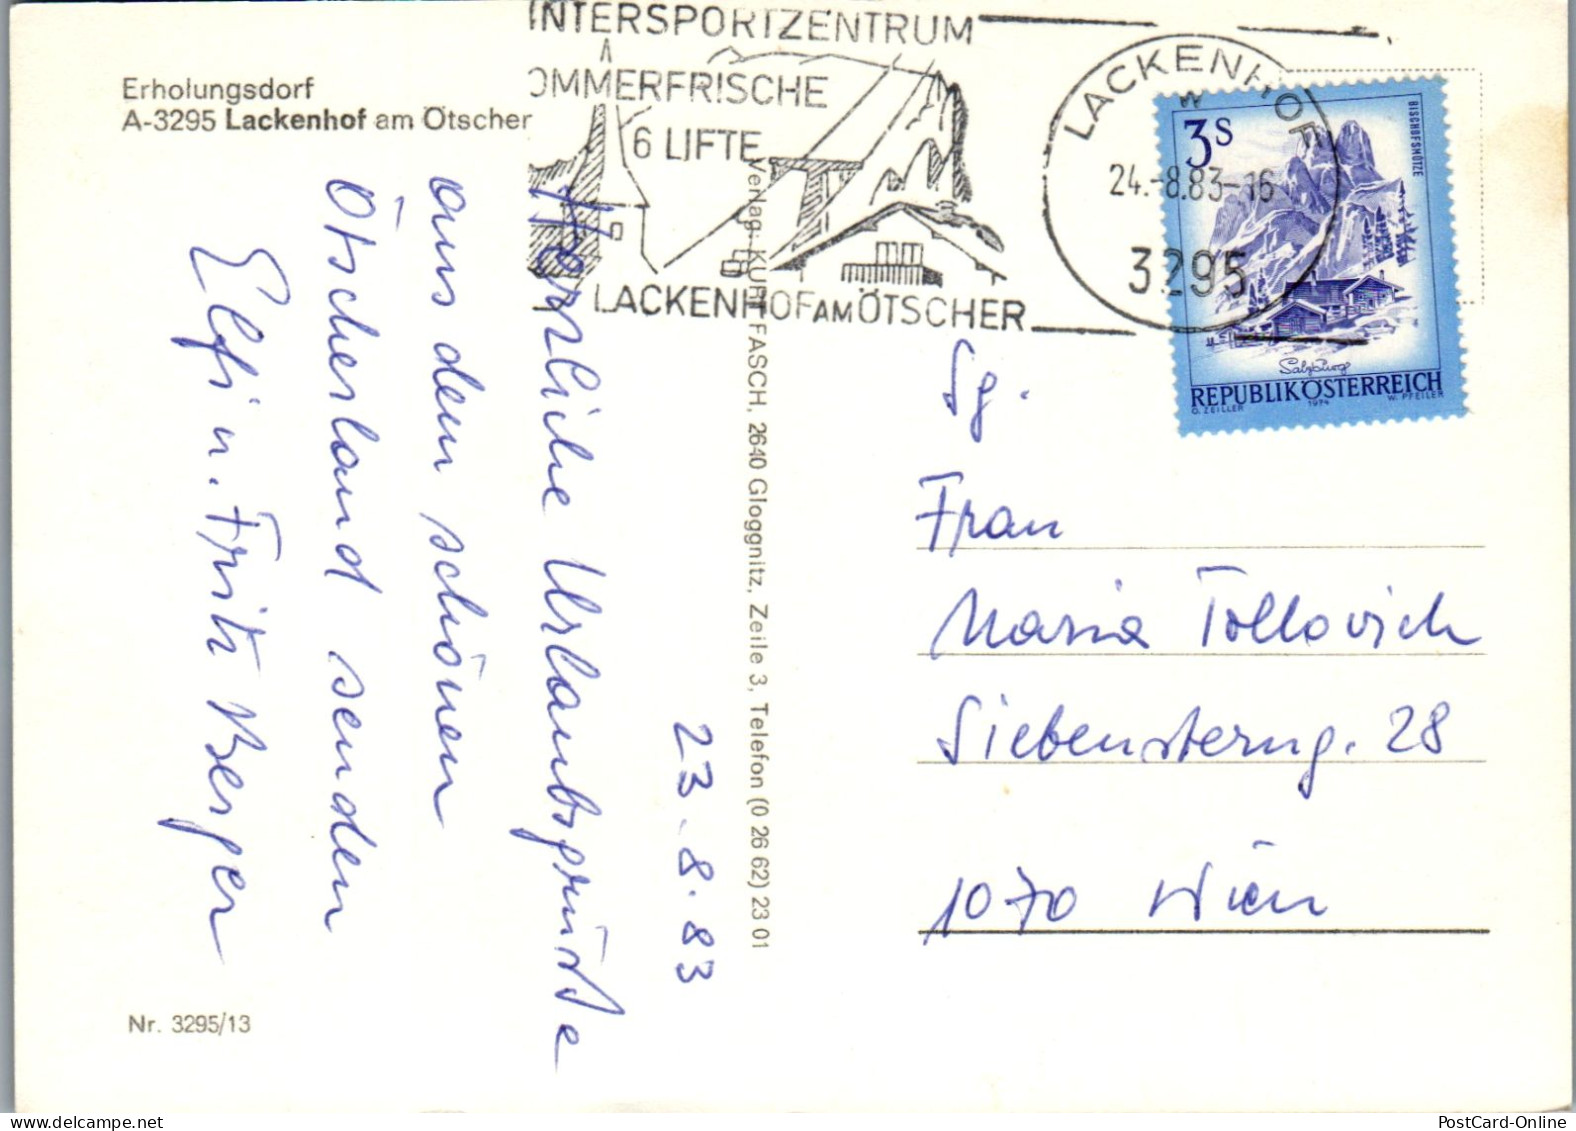 Erholungsdorf
A-3295 Lackenhof am Ötscher
INTERSPORTZENTRUM
OMMERFRISCHE
6 LIFTE
LACKENHOF AM ÖTSCHER
LACKENHOF
w
24.-8.83-16
3295
3 S
BISCHOFSMÜTZE
Salzburg
REPUBLIK ÖSTERREICH
O. ZEILLER 1974 W. PFEILER
23.8.83
Herzliche Urlaubsgrüße
aus dem schönen
Ötscherland senden
Elfi u. Fritz Berger
Verlag: KURT FASCH, 2640 Gloggnitz, Zeile 3, Telefon (0 26 62) 23 01
Sg.
Frau
Maria Tollovich
Siebensterng. 28
1070 Wien
Nr. 3295/13
PostCard-Online
delcampe.net